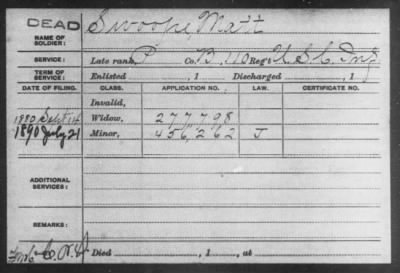 DEAD
NAME OF SOLDIER: Swoope, Matt
SERVICE: Late rank, P Co. B, 40 Reg't U S C Inf
TERM OF SERVICE: Enlisted , 1 Discharged , 1
DATE OF FILING. CLASS. APPLICATION NO. LAW. CERTIFICATE NO.
Invalid,
1880 Sept 14 Widow, 277798
1890 July 21 Minor, 456,262 J
ADDITIONAL SERVICES:
REMARKS:
Died , 1 , at